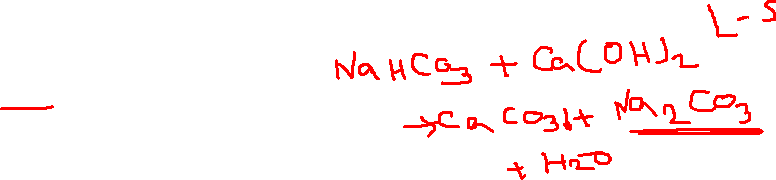 L-S
NaHCO3 + Ca(OH)2
→ CaCO3↓ + Na2CO3
+ H2O